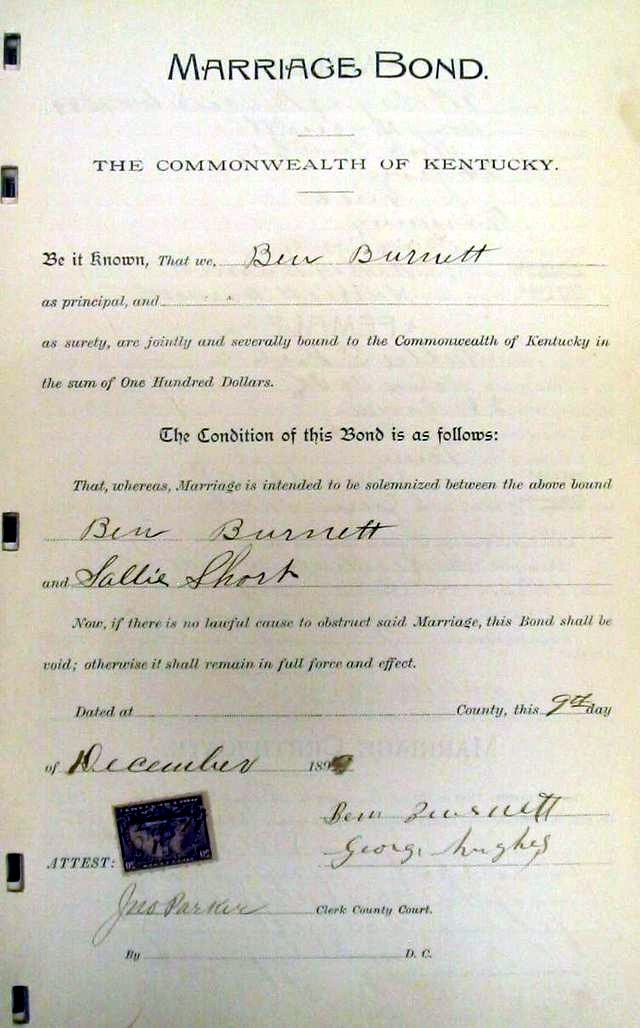 MARRIAGE BOND.
THE COMMONWEALTH OF KENTUCKY.
Be it Known, That we, Ben Burnett
as principal, and
as surety, are jointly and severally bound to the Commonwealth of Kentucky in
the sum of One Hundred Dollars.
The Condition of this Bond is as follows:
That, whereas, Marriage is intended to be solemnized between the above bound
Ben Burnett
and Sallie Short
Now, if there is no lawful cause to obstruct said Marriage, this Bond shall be
void; otherwise it shall remain in full force and effect.
Dated at County, this 9th day
of December 189
Ben Burnett
George Hughes
ATTEST:
Jno Parker Clerk County Court.
By D. C.